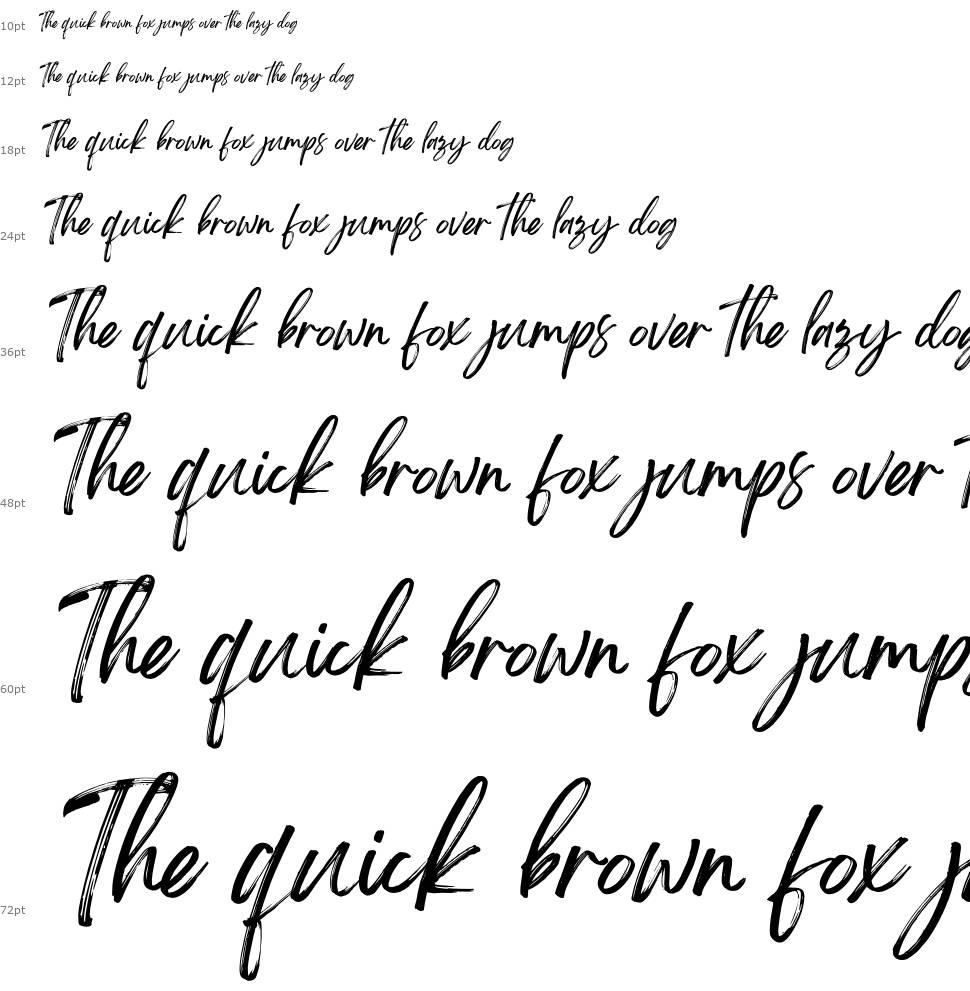 10pt The quick brown fox jumps over the lazy dog
12pt The quick brown fox jumps over the lazy dog
18pt The quick brown fox jumps over the lazy dog
24pt The quick brown fox jumps over the lazy dog
36pt The quick brown fox jumps over the lazy dog
48pt The quick brown fox jumps over T
60pt The quick brown fox jump
72pt The quick brown fox j